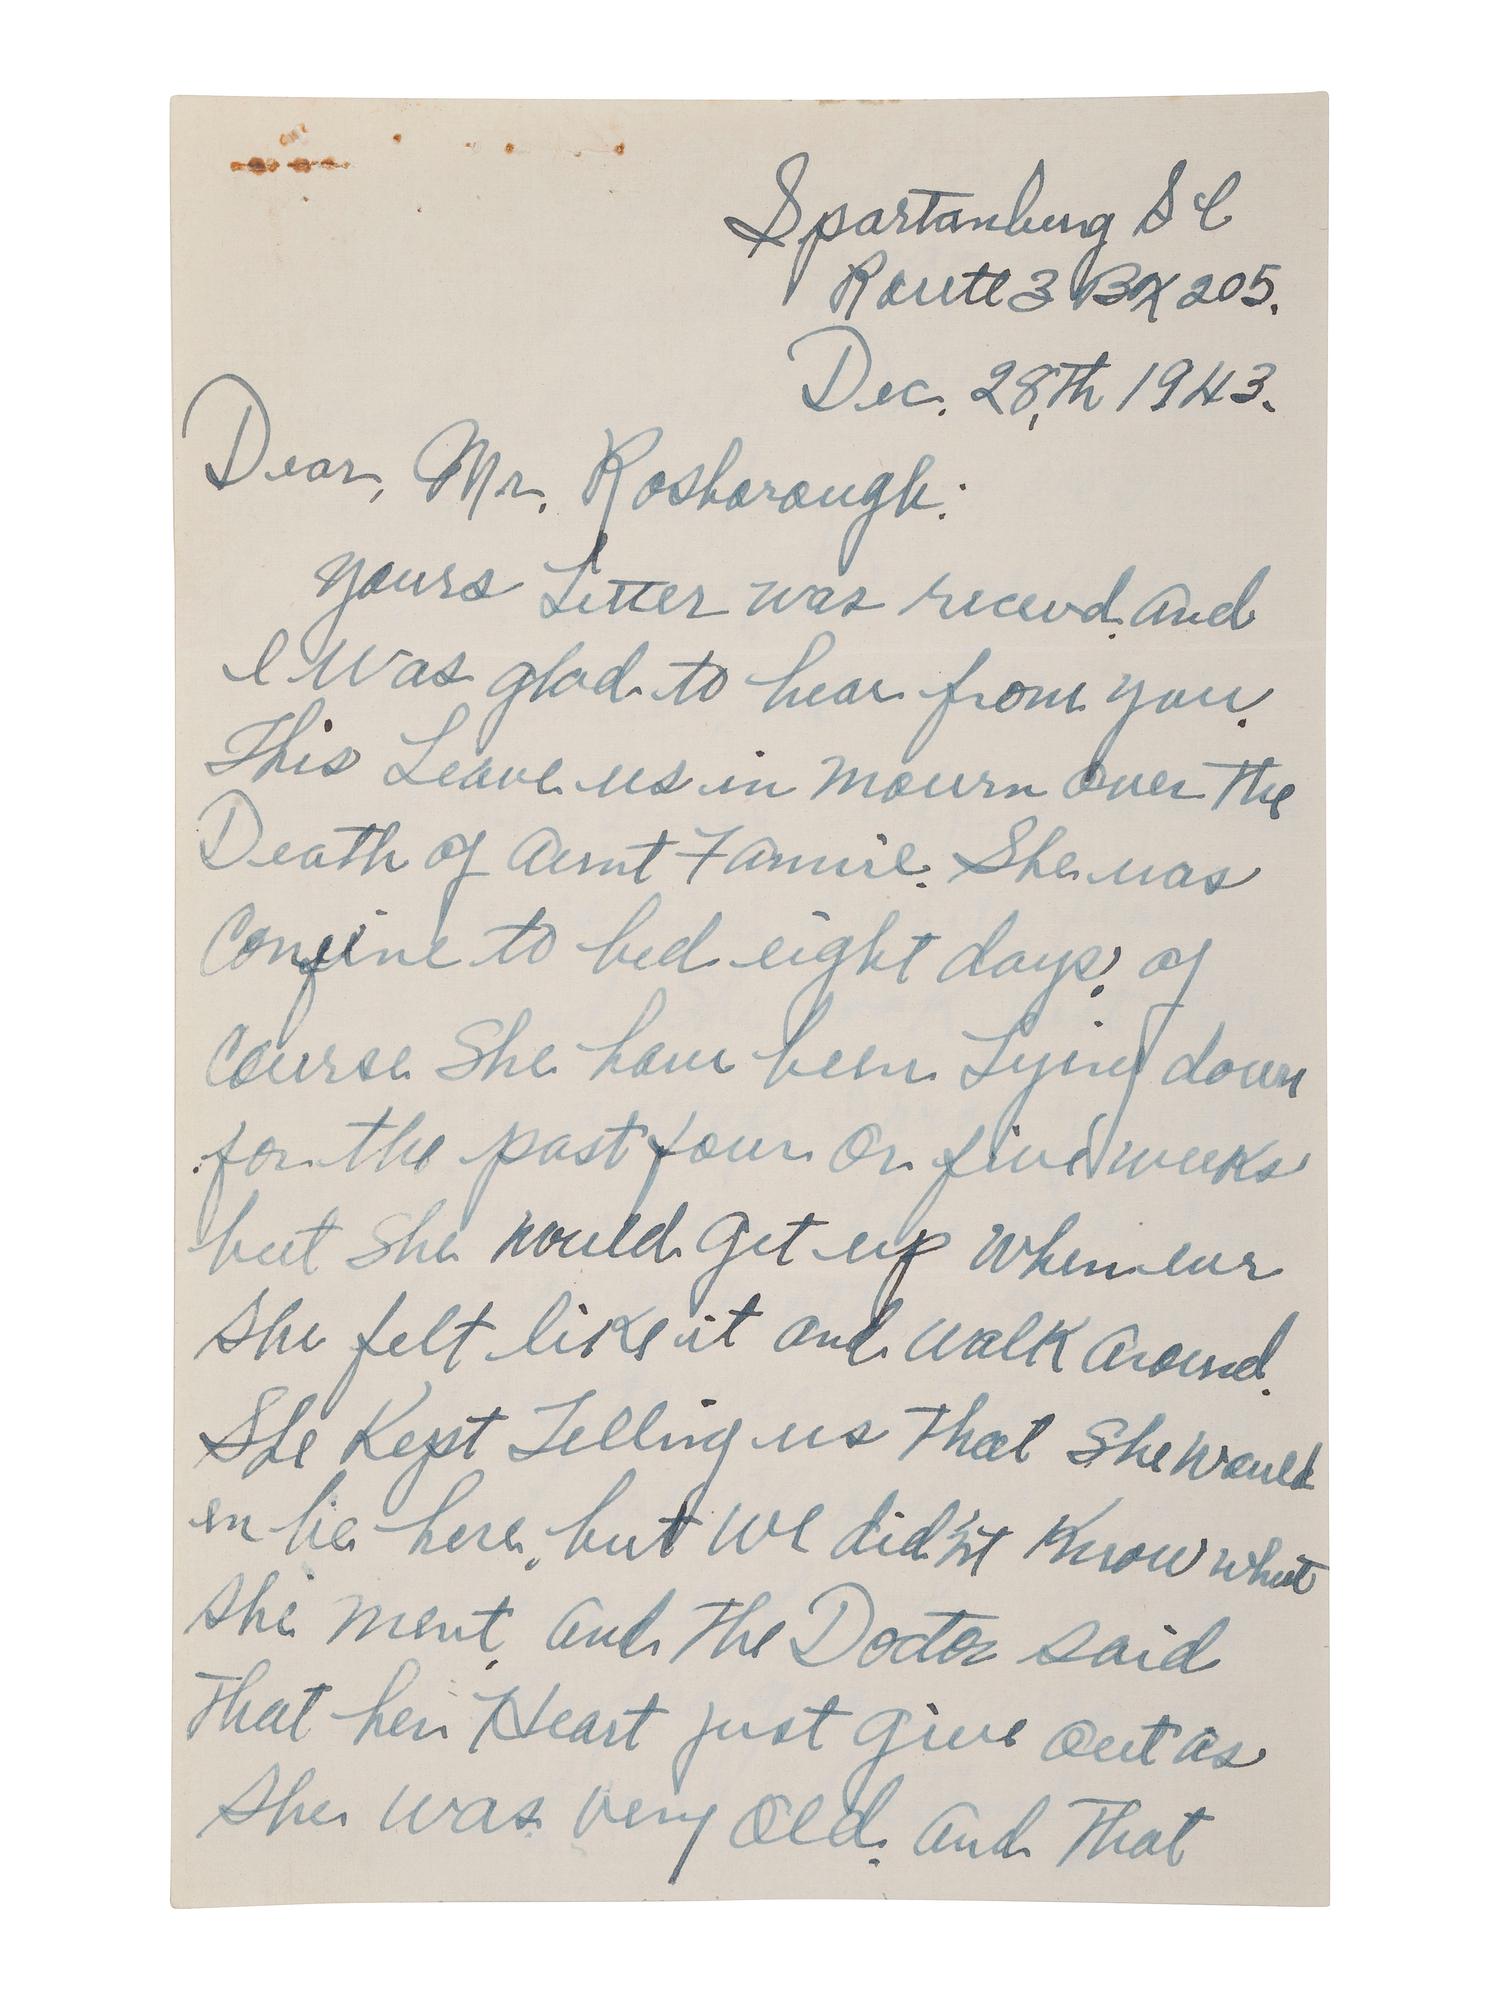 Spartanburg S C
Route 3 BX 205.
Dec. 28,th 1943.
Dear, Mr. Rosborough:
yours Letter was recevd. and
I was glad to hear from you.
This Leave us in mourn over The
Death of Aunt Fannie. She was
Confine to bed eight days, of
Course She have been Lying down
for the past four or five weeks
but She would get up when ever
She felt like it and walk around.
She Kept Telling us That She would
be here, but we did'nt Know what
She ment, and The Doctor said
That her Heart just give out as
She was very old. and That